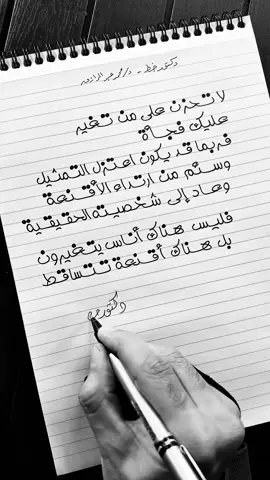 دكتور خط - د/محمد عبد الرازق
لا تحزن على من تغير
عليك فجأة
فربما قد يكون اعتزل التمثيل
وسئم من ارتداء الأقنعة
وعاد إلى شخصيته الحقيقية
فليس هناك أناس يتغيرون
بل هناك أقنعة تتساقط
دكتور